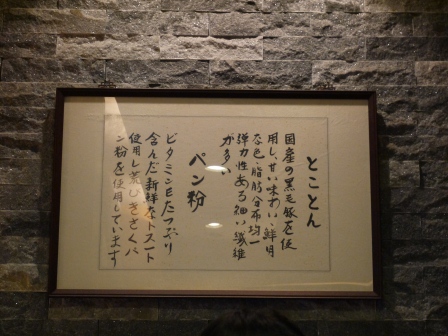 とことん
国産の黒毛豚を使
用し、甘い味わい、鮮明
な色、脂肪分布均一
弾力性ある細い繊維
が多い
パン粉
ビタミンEたっぷり
含んだ新鮮なトースト
使用し荒びきざくパ
ン粉を使用しています